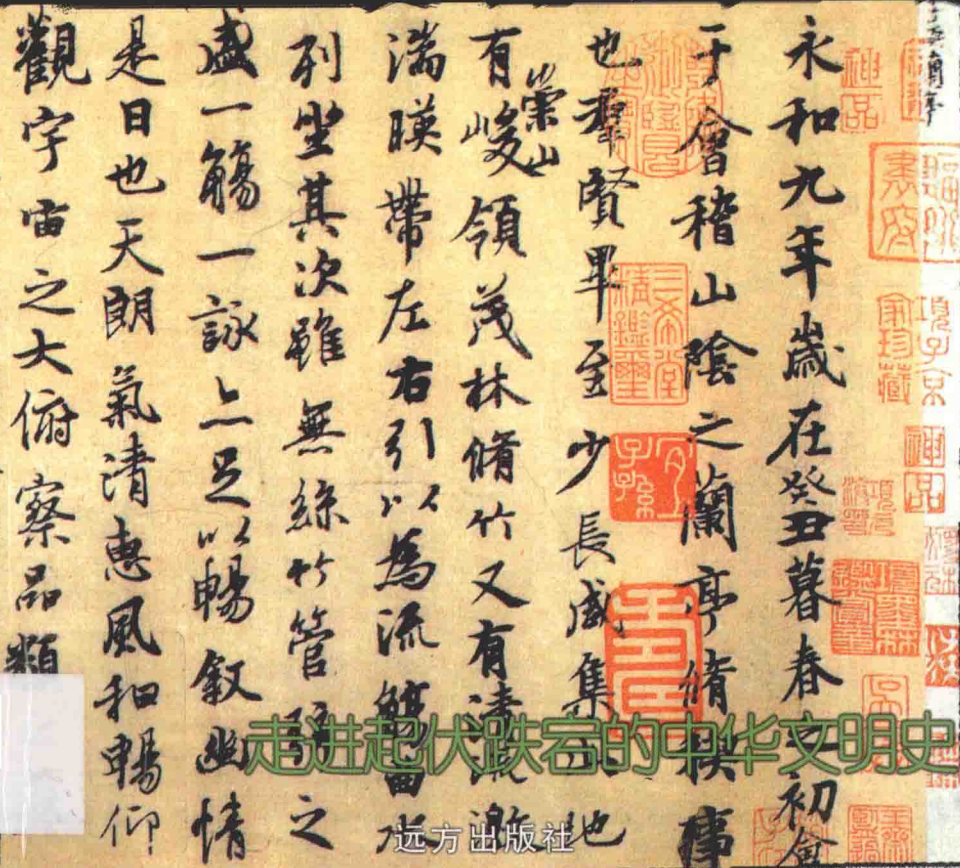 永和九年歲在癸丑暮春之初會
于會稽山陰之蘭亭脩稧事
也羣賢畢至少長咸集此地
有崇山峻領茂林脩竹又有清流激
湍暎帶左右引以為流觴曲水
列坐其次雖無絲竹管弦之
盛一觴一詠亦足以暢叙幽情
是日也天朗氣清惠風和暢仰
觀宇宙之大俯察品類
走进起伏跌宕的中华文明史
远方出版社
神品
項子京
家珍藏
神品
三希堂
精鑑璽
宜子孫